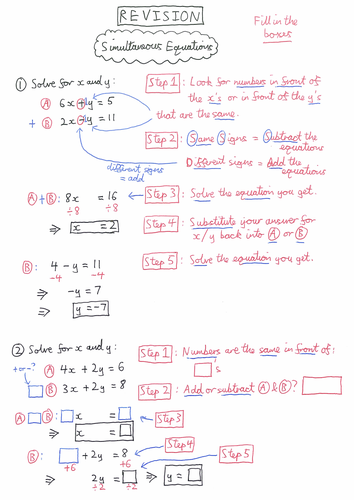 REVISION
Simultaneous Equations
Fill in the
boxes
① Solve for x and y:
Ⓐ 6x + 1y = 5
+ Ⓑ 2x - 1y = 11
different signs
= add
Step 1: Look for numbers in front of
the x's or in front of the y's
that are the same.
Step 2: Same Signs = Subtract the
equations
Different signs = Add the
equations
Ⓐ+Ⓑ: 8x = 16
÷8 ÷8
⇒ x = 2
Step 3: Solve the equation you get.
Step 4: Substitute your answer for
x/y back into Ⓐ or Ⓑ
Step 5: Solve the equation you get.
Ⓑ: 4 - y = 11
-4 -4
⇒ -y = 7
⇒ y = -7
② Solve for x and y:
+ or - ?
Ⓐ 4x + 2y = 6
Ⓑ 3x + 2y = 8
Step 1: Numbers are the same in front of:
's
Step 2: Add or subtract Ⓐ & Ⓑ?
Ⓐ Ⓑ: x =
Step 3
⇒ x =
Ⓑ: + 2y = 8
Step 4
+6 +6
2y =
Step 5
÷2 ÷2
⇒ y =